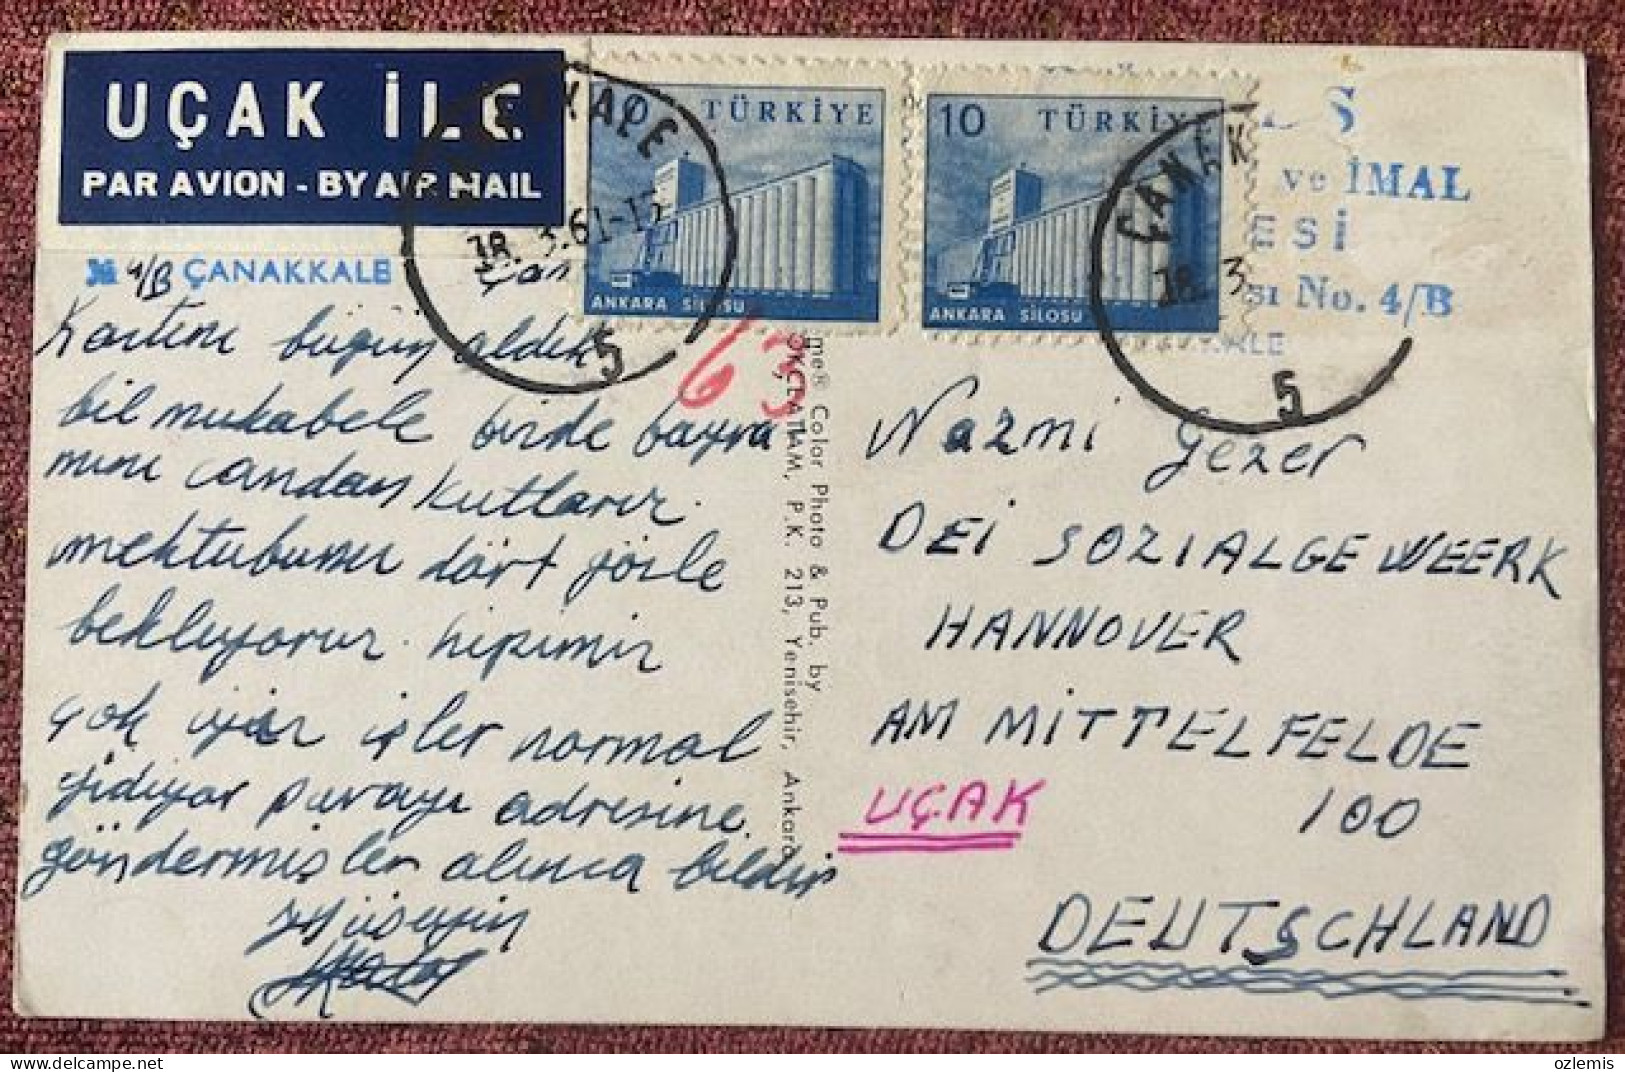 UÇAK İLE
PAR AVION - BY AIR MAIL
TÜRKİYE
ANKARA SİLOSU
10 TÜRKİYE
ANKARA SİLOSU
ÇANAKKALE
18. 3.61-15
5
ÇANAK
18. 3
5
S
ve İMAL
ESİ
sı No. 4/B
KALE
4/B ÇANAKKALE
63
Kartını bugün aldık
bil mukabele bizde bayra
mını candan kutlarız.
mektubunu dört gözle
bekliyoruz. hepimiz
çok iyiyiz işler normal
gidiyor parayı adresine
göndermişler alınca bildir
Hüseyin
me® Color Photo & Pub. by
OKÇLATIAM, P.K. 213, Yenisehir, Ankara
Nazmi Gezer
DEI SOZIALGEWEERK
HANNOVER
AM MITTELFELDE
100
UÇAK
DEUTSCHLAND
ozlemis